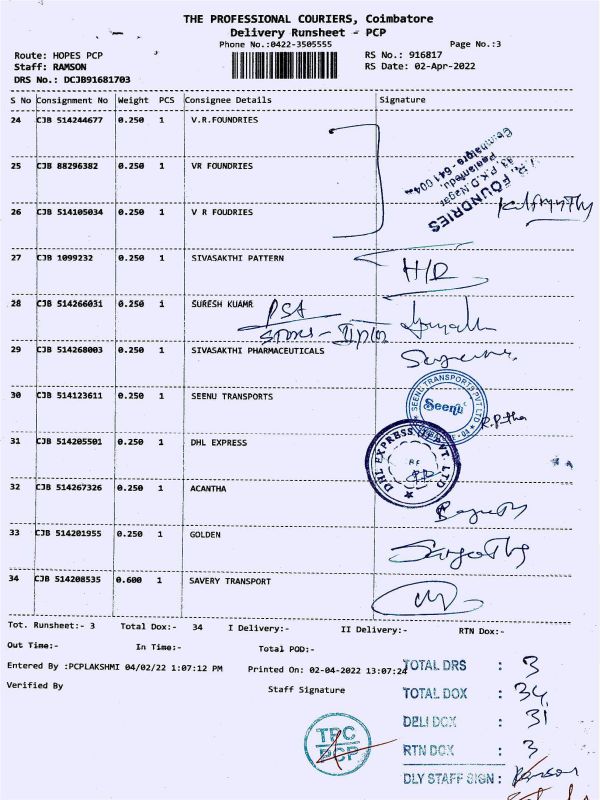 THE PROFESSIONAL COURIERS, Coimbatore
Delivery Runsheet - PCP
Phone No.:0422-3505555
Page No.:3
Route: HOPES PCP
Staff: RAMSON
DRS No.: DCJB91681703
RS No.: 916817
RS Date: 02-Apr-2022
S No Consignment No Weight PCS Consignee Details Signature
24 CJB 514244677 0.250 1 V.R.FOUNDRIES
25 CJB 88296382 0.250 1 VR FOUNDRIES
26 CJB 514105034 0.250 1 V R FOUDRIES
FOUNDRIES
43, P.K.D. Nagar,
Peelamedu,
Coimbatore - 641 004
27 CJB 1099232 0.250 1 SIVASAKTHI PATTERN
H/D
28 CJB 514266031 0.250 1 SURESH KUAMR
29 CJB 514268003 0.250 1 SIVASAKTHI PHARMACEUTICALS
30 CJB 514123611 0.250 1 SEENU TRANSPORTS
SEENU TRANSPORTS PVT LTD
Seenu
31 CJB 514205501 0.250 1 DHL EXPRESS
DHL EXPRESS PVT. LTD
32 CJB 514267326 0.250 1 ACANTHA
33 CJB 514201955 0.250 1 GOLDEN
34 CJB 514208535 0.600 1 SAVERY TRANSPORT
Tot. Runsheet:- 3 Total Dox:- 34 I Delivery:- II Delivery:- RTN Dox:-
Out Time:- In Time:- Total POD:-
Entered By :PCPLAKSHMI 04/02/22 1:07:12 PM Printed On: 02-04-2022 13:07:24
Verified By Staff Signature
TOTAL DRS : 3
TOTAL DOX : 34
DELI DOX : 31
RTN DOX : 3
DLY STAFF SIGN : Ramson
TPC
PCP